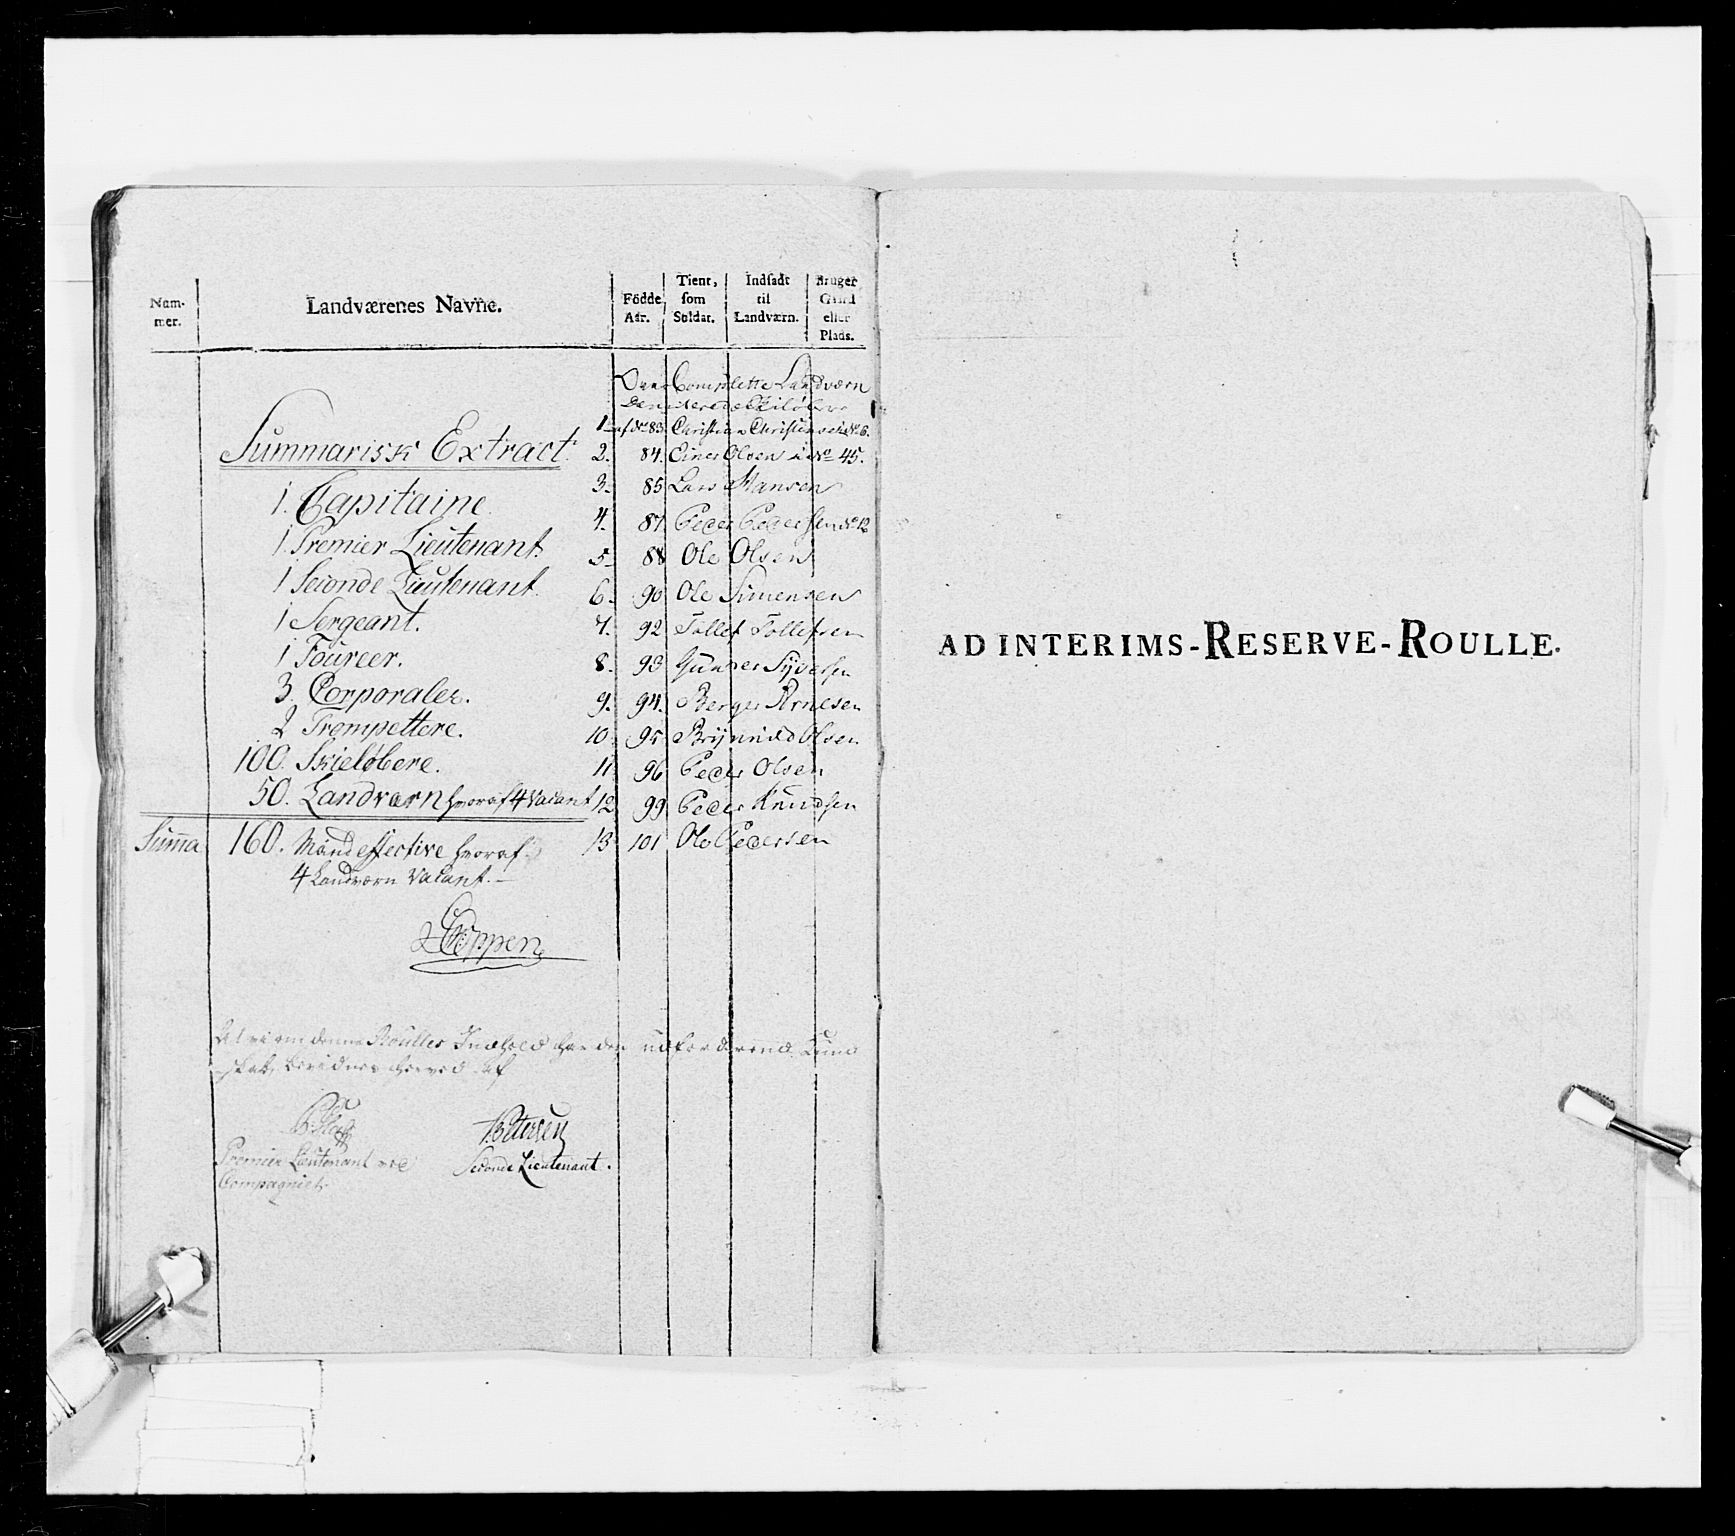 Num-
mer.
Landværenes Navne.
Födde
Aar.
Tient,
som
Soldat.
Indsadt
til
Landværn.
Bruger
Gaard
eller
Plads.
Over Complette Landværn
Summarisk Extract.
1. Capitaine
1 Premier Lieutenant
1 Seconde Lieutenant.
1 Sergeant.
1 Foureer.
3. Corporaler.
2 Trompettere.
100. Skieløbere.
50. Landværn hvoraf 4 Vacant
Summa 160. Mand effective hvoraf
4 Landværn Vacant.
1. af No 83. Christian Christensen No 6.
2. 84. Einer Olsen i No 45.
3. 85 Lars Hansen
4. 87. Peder Pedersen No 12
5. 88 Ole Olsen
6. 90 Ole Simensen
7. 92 Tollef Tollefsen
8. 93 Gunder Syversen
9. 94. Berger Arnesen
10 95 Brynild Olsen
11 96 Peder Olsen
12 99 Peder Knudsen
13 101 Ole Pedersen
At vi om denne Roulles Indhold har den udfordrende Kund
skab, bevidnes herved af
Petersen
Premier Lieutenant ved
Compagniet
Seconde Lieutenant.
AD INTERIMS-RESERVE-ROULLE.